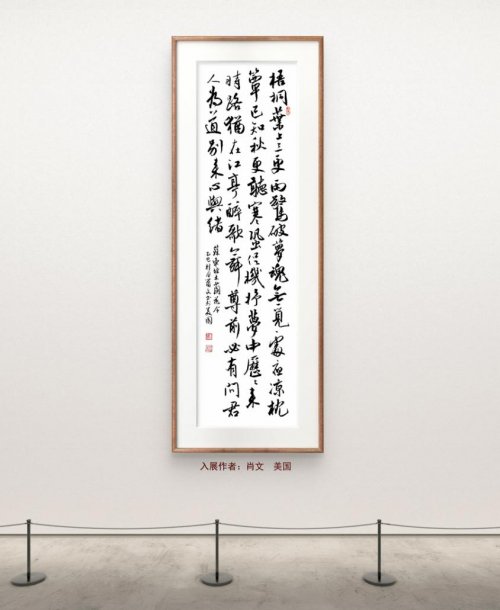 梧桐葉上三更雨驚破夢魂無覓處夜涼枕
簟已知秋更聽寒蛩促機杼夢中歷々來
時路猶在江亭醉歌舞尊前必有問君
人為道別來心與緒
蘇東坡木蘭花令
乙巳肖文書於美國
入展作者：肖文 美国